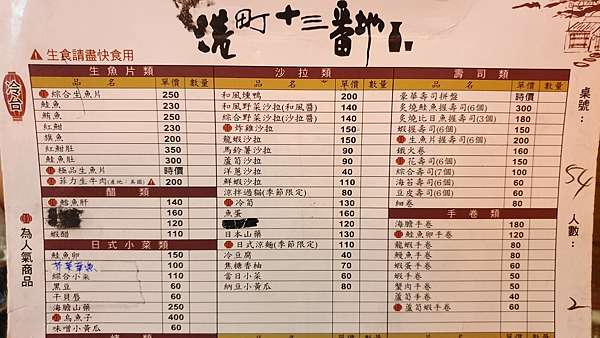 港町十三番地
生食請盡快食用
冷台
為人氣商品
桌號：
54
人數：
2
生魚片類
品名 單價 數量
綜合生魚片 250
鮭魚 230
鮪魚 250
紅魽 230
旗魚 200
紅魽肚 350
鮭魚肚 300
極品生魚片 時價
菲力生牛肉(產地:美國) 200
醋類
鱈魚肝 140
160
蝦醋 110
日式小菜類
鮭魚卵 150
100
綜合小菜 110
黑豆 60
干貝唇 60
海膽山藥 250
烏魚子 400
味噌小黃瓜 60
沙拉類
品名 單價 數量
和風燻鴨 200
和風野菜沙拉(和風醬) 140
綜合野菜沙拉(沙拉醬) 140
炸雞沙拉 150
龍蝦沙拉 150
馬鈴薯沙拉 90
蘆筍沙拉 90
洋蔥沙拉 40
鮮蝦沙拉 110
涼拌過貓(季節限定) 80
冷筍 130
魚蛋 160
120
日本山藥 130
日式涼麵(季節限定) 110
冷豆腐 40
焦糖香柚 70
當日小菜 60
納豆小黃瓜 80
品名 單價 數量
壽司類
品名 單價 數量
豪華壽司拼盤 時價
炙燒鮭魚握壽司(6個) 300
炙燒比目魚握壽司(3個) 180
蝦握壽司(6個) 150
生魚片握壽司(6個) 200
鐵火卷 160
花壽司(6個) 150
綜合壽司(7個) 100
海苔壽司(6個) 60
豆皮壽司(6個) 60
細卷 80
手卷類
海膽手卷 180
鮭魚卵手卷 120
龍蝦手卷 80
鰻魚手卷 80
蝦蛋手卷 60
蝦手卷 60
蟹肉手卷 50
蘆筍手卷 40
蘆筍蝦手卷 60